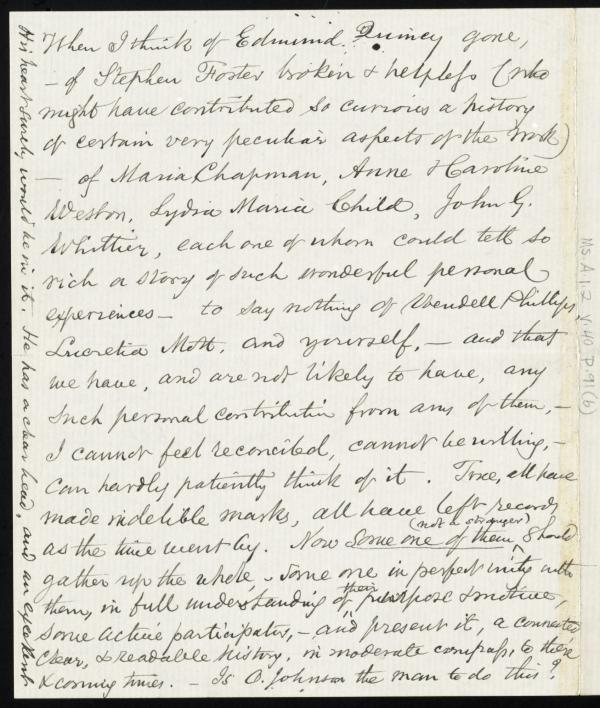 When I think of Edmund Quincy gone,
- of Stephen Foster broken & helpless (who
might have contributed so curious a history
of certain very peculiar aspects of the work)
- of Maria Chapman, Anne & Caroline
Weston, Lydia Maria Child, John G.
Whittier, each one of whom could tell so
rich a story of such wonderful personal
experiences - to say nothing of Wendell Phillips,
Lucretia Mott, and yourself, - and that
we have, and are not likely to have, any
such personal contribution from any of them, -
I cannot feel reconciled, cannot be willing, -
can hardly patiently think of it. True, all have
made indelible marks, all have left records
as the time went by. Now some one of them (not a stranger) should
gather up the whole, - some one in perfect unity with
them, in full understanding of their purpose & motive,
some active participator, - and present it, a connected
clear, & readable history, in moderate compass, to these
& coming times. - Is O. Johnson the man to do this?
His heart surely would be in it. He has a clear head, and an excellent
Ms.A.1.2 v.40 p.91(b)